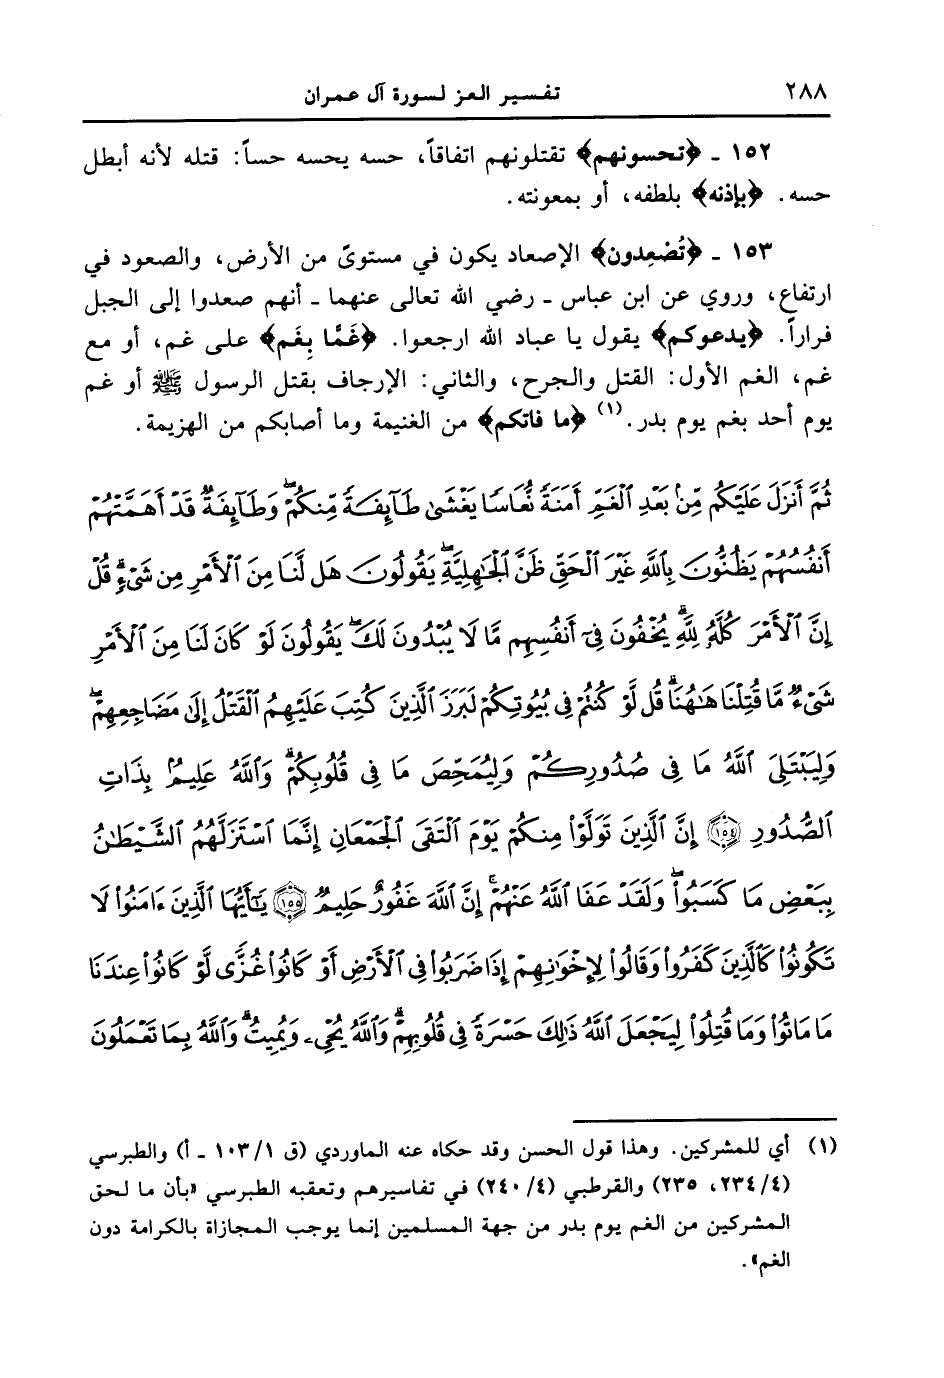 ٢٨٨ تفسير العز لسورة آل عمران
١٥٢ ـ ﴿تحسونهم﴾ تقتلونهم اتفاقاً، حسه يحسه حساً: قتله لأنه أبطل
حسه. ﴿بإذنه﴾ بلطفه، أو بمعونته.
١٥٣ ـ ﴿تُصْعِدون﴾ الإصعاد يكون في مستوىً من الأرض، والصعود في
ارتفاع، وروي عن ابن عباس ـ رضي الله تعالى عنهما ـ أنهم صعدوا إلى الجبل
فراراً. ﴿يدعوكم﴾ يقول يا عباد الله ارجعوا. ﴿غَمًّا بِغَم﴾ على غم، أو مع
غم، الغم الأول: القتل والجرح، والثاني: الإرجاف بقتل الرسول ﷺ أو غم
يوم أحد بغم يوم بدر.(١) ﴿ما فاتكم﴾ من الغنيمة وما أصابكم من الهزيمة.
ثُمَّ أَنزَلَ عَلَيْكُم مِّنۢ بَعْدِ ٱلْغَمِّ أَمَنَةً نُّعَاسًا يَغْشَىٰ طَآئِفَةً مِّنكُمْ ۖ وَطَآئِفَةٌ قَدْ أَهَمَّتْهُمْ
أَنفُسُهُمْ يَظُنُّونَ بِٱللَّهِ غَيْرَ ٱلْحَقِّ ظَنَّ ٱلْجَٰهِلِيَّةِ ۖ يَقُولُونَ هَل لَّنَا مِنَ ٱلْأَمْرِ مِن شَىْءٍ ۗ قُلْ
إِنَّ ٱلْأَمْرَ كُلَّهُۥ لِلَّهِ ۗ يُخْفُونَ فِىٓ أَنفُسِهِم مَّا لَا يُبْدُونَ لَكَ ۖ يَقُولُونَ لَوْ كَانَ لَنَا مِنَ ٱلْأَمْرِ
شَىْءٌ مَّا قُتِلْنَا هَٰهُنَا ۗ قُل لَّوْ كُنتُمْ فِى بُيُوتِكُمْ لَبَرَزَ ٱلَّذِينَ كُتِبَ عَلَيْهِمُ ٱلْقَتْلُ إِلَىٰ مَضَاجِعِهِمْ ۖ
وَلِيَبْتَلِىَ ٱللَّهُ مَا فِى صُدُورِكُمْ وَلِيُمَحِّصَ مَا فِى قُلُوبِكُمْ ۗ وَٱللَّهُ عَلِيمٌۢ بِذَاتِ
ٱلصُّدُورِ ﴿١٥٤﴾ إِنَّ ٱلَّذِينَ تَوَلَّوْا۟ مِنكُمْ يَوْمَ ٱلْتَقَى ٱلْجَمْعَانِ إِنَّمَا ٱسْتَزَلَّهُمُ ٱلشَّيْطَٰنُ
بِبَعْضِ مَا كَسَبُوا۟ ۖ وَلَقَدْ عَفَا ٱللَّهُ عَنْهُمْ ۗ إِنَّ ٱللَّهَ غَفُورٌ حَلِيمٌ ﴿١٥٥﴾ يَٰٓأَيُّهَا ٱلَّذِينَ ءَامَنُوا۟ لَا
تَكُونُوا۟ كَٱلَّذِينَ كَفَرُوا۟ وَقَالُوا۟ لِإِخْوَٰنِهِمْ إِذَا ضَرَبُوا۟ فِى ٱلْأَرْضِ أَوْ كَانُوا۟ غُزًّى لَّوْ كَانُوا۟ عِندَنَا
مَا مَاتُوا۟ وَمَا قُتِلُوا۟ لِيَجْعَلَ ٱللَّهُ ذَٰلِكَ حَسْرَةً فِى قُلُوبِهِمْ ۗ وَٱللَّهُ يُحْىِۦ وَيُمِيتُ ۗ وَٱللَّهُ بِمَا تَعْمَلُونَ
(١) أي للمشركين. وهذا قول الحسن وقد حكاه عنه الماوردي (ق ١٠٣/١ ـ أ) والطبرسي
(٢٣٤/٤، ٢٣٥) والقرطبي (٢٤٠/٤) في تفاسيرهم وتعقبه الطبرسي «بأن ما لحق
المشركين من الغم يوم بدر من جهة المسلمين إنما يوجب المجازاة بالكرامة دون
الغم».